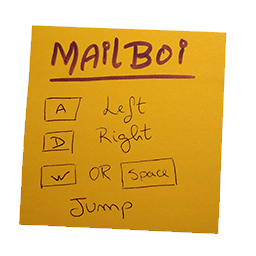 MAILBOI
A Left
D Right
W OR Space
Jump